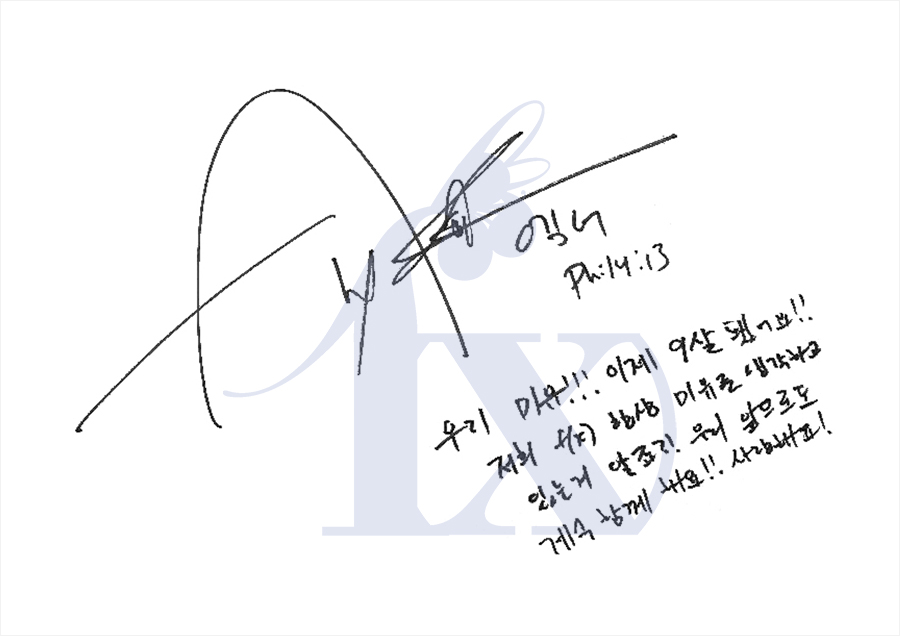 엠버
Phil4:13
우리 미유!!! 이제 9살 됐어요!!
저희 f(x) 항상 미유를 생각하고
있는거 알죠?! 우리 앞으로도
계속 함께 해요!! 사랑해요!